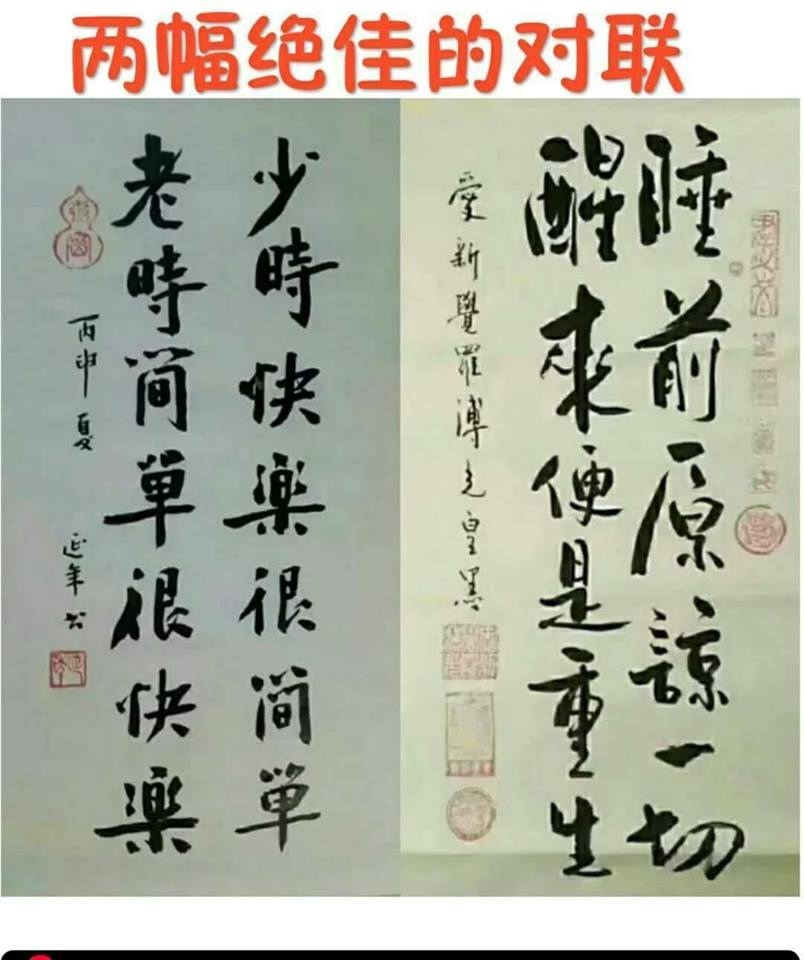 两幅绝佳的对联
少時快樂很简單
老時简單很快樂
丙申夏 延年书
睡前原諒一切
醒來便是重生
愛新覺羅溥